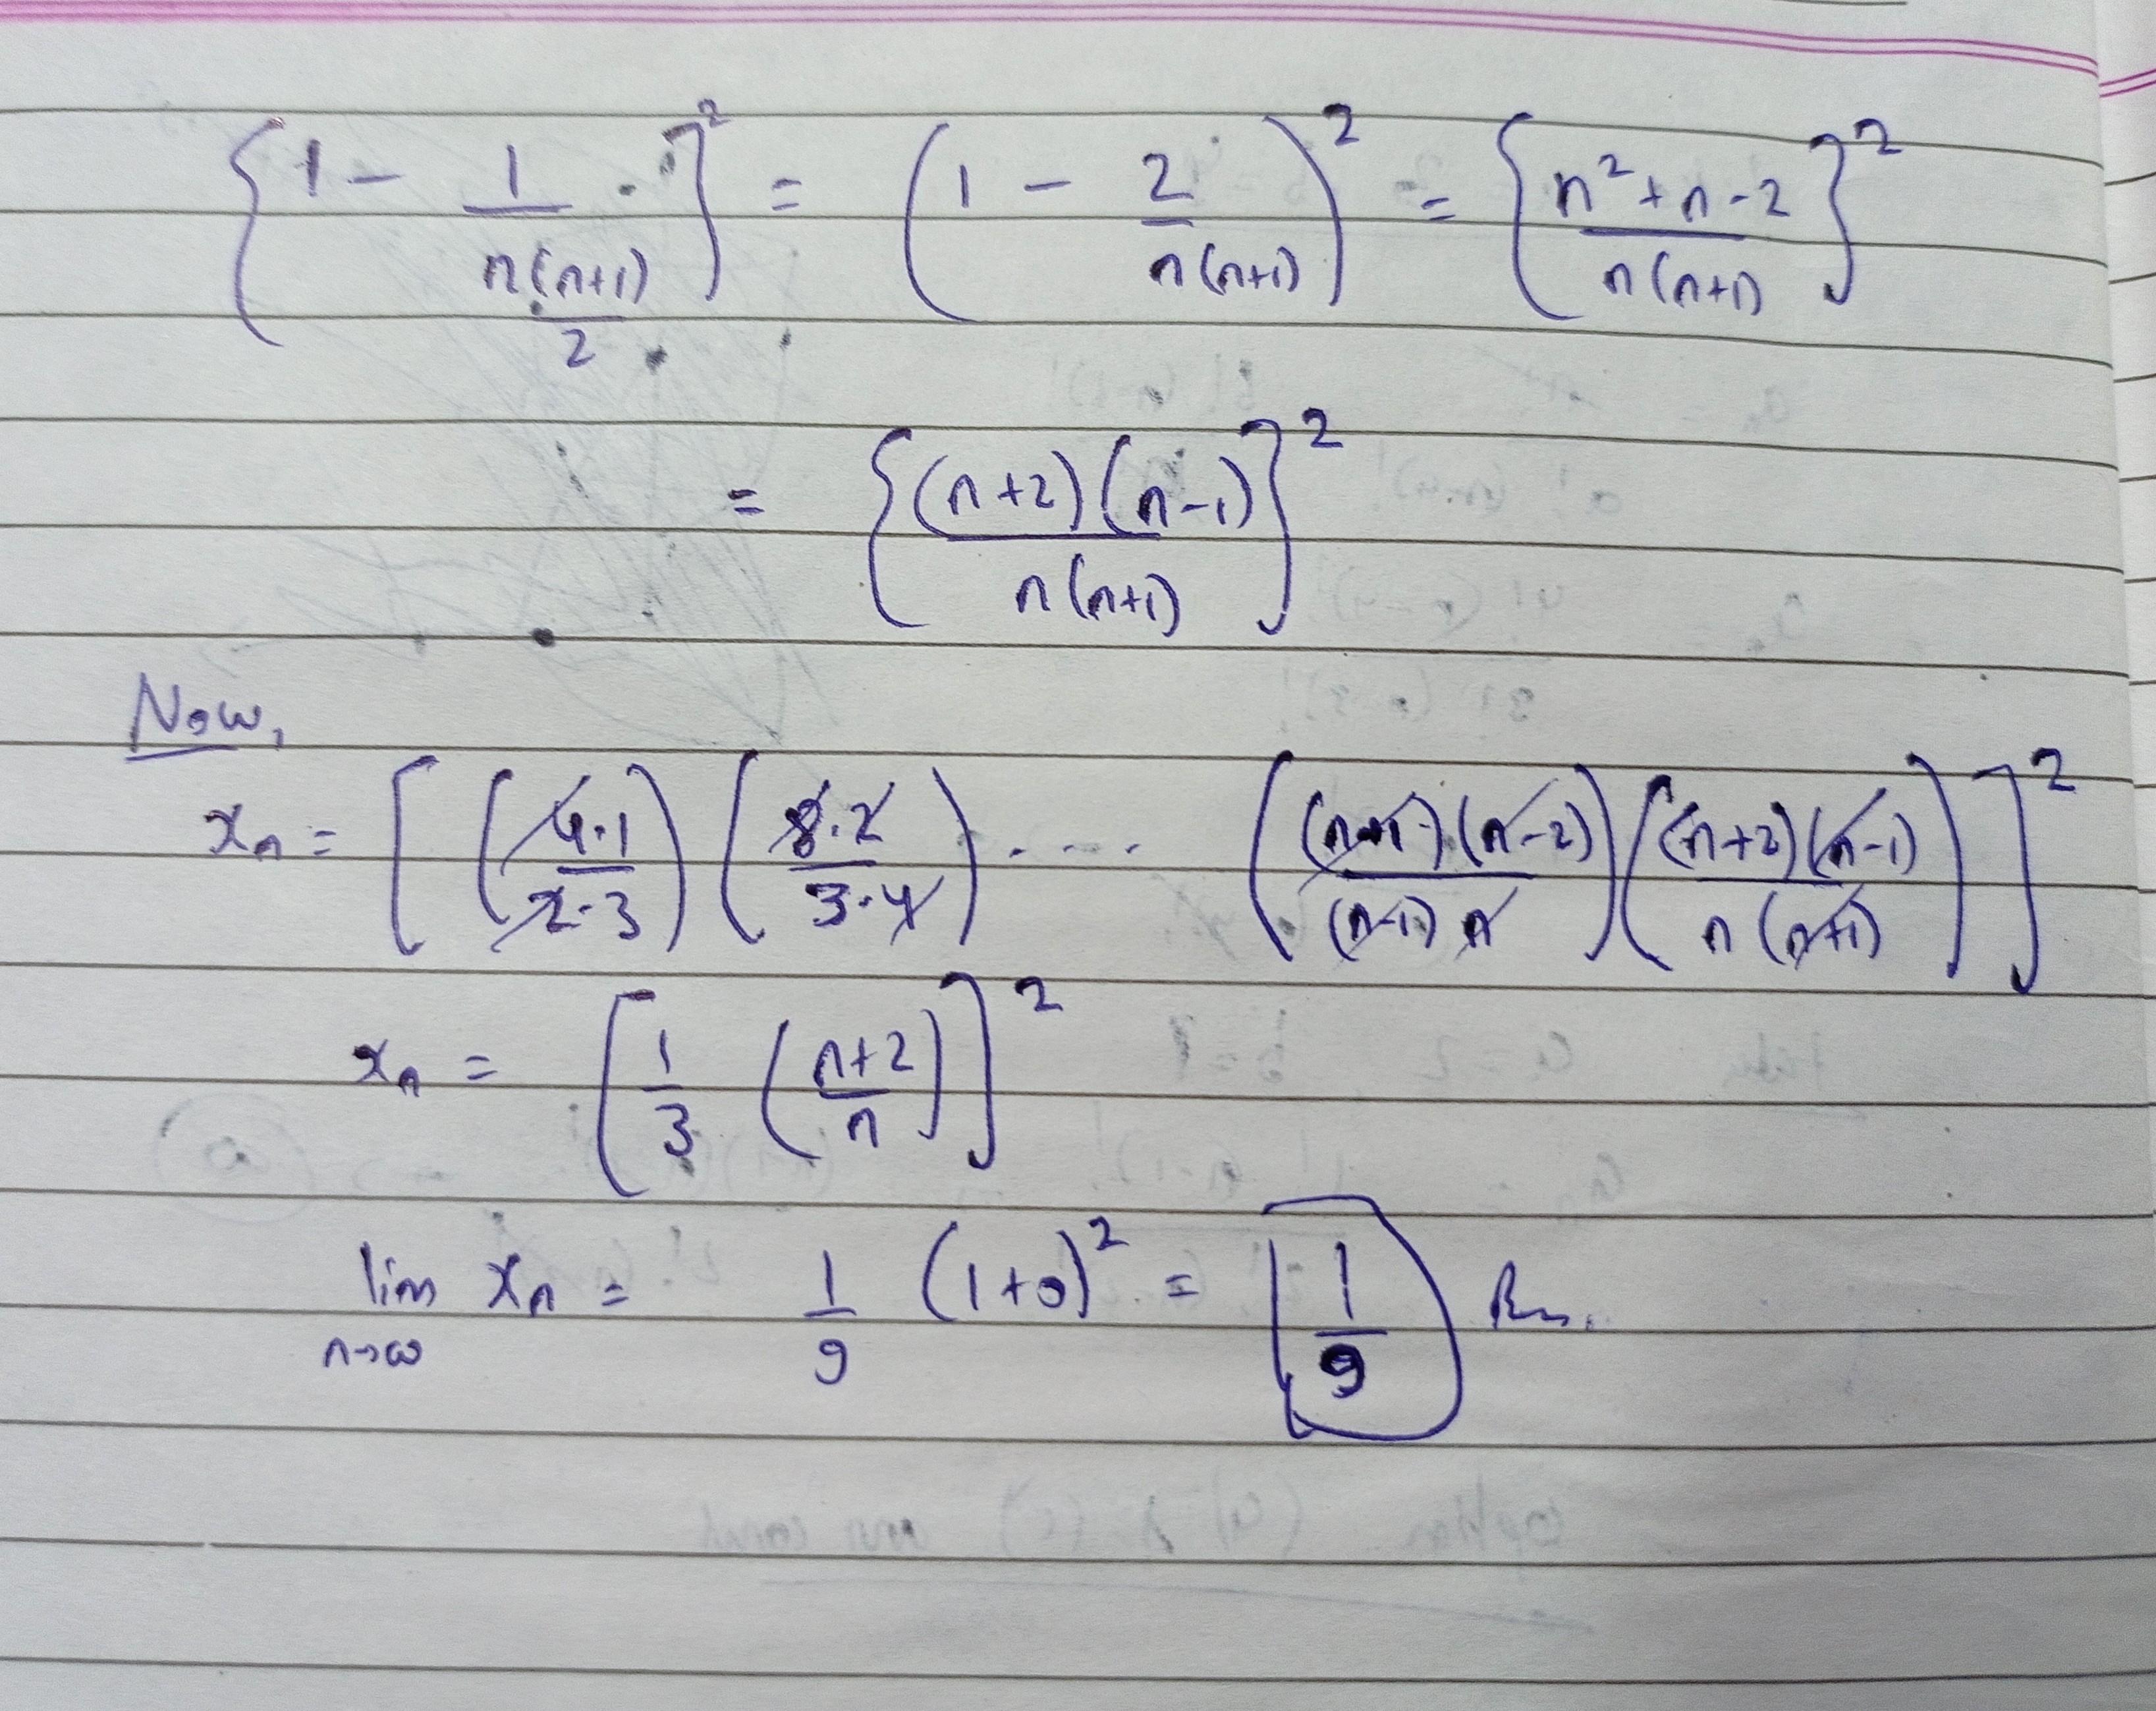 {1 - 1/(n(n+1)/2)}² = (1 - 2/n(n+1))² = {(n²+n-2)/n(n+1)}²
= {(n+2)(n-1)/n(n+1)}²
Now,
xₙ = [(4·1/2·3)(8·2/3·4) .... ((n+1)(n-2)/(n-1)n)((n+2)(n-1)/n(n+1))]²
xₙ = [1/3 ((n+2)/n)]²
lim n→∞ xₙ = 1/9 (1+0)² = 1/9